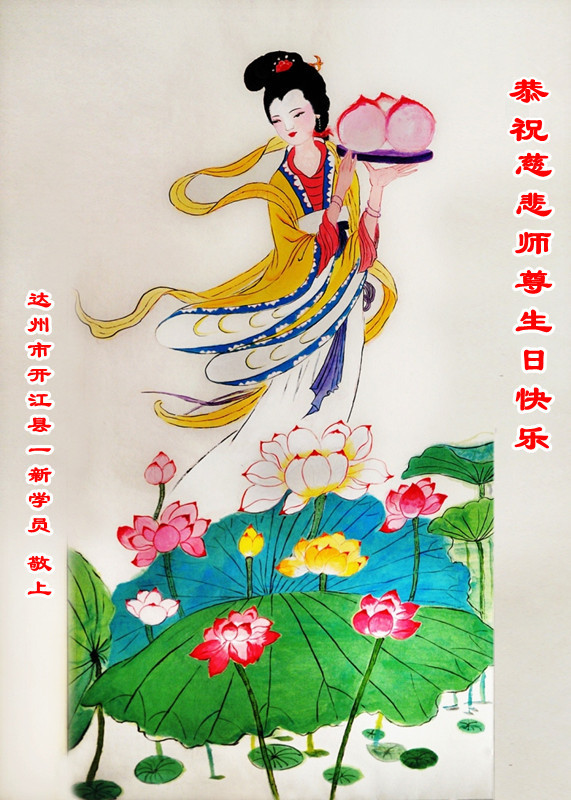 恭祝慈悲师尊生日快乐
达州市开江县一新学员 敬上